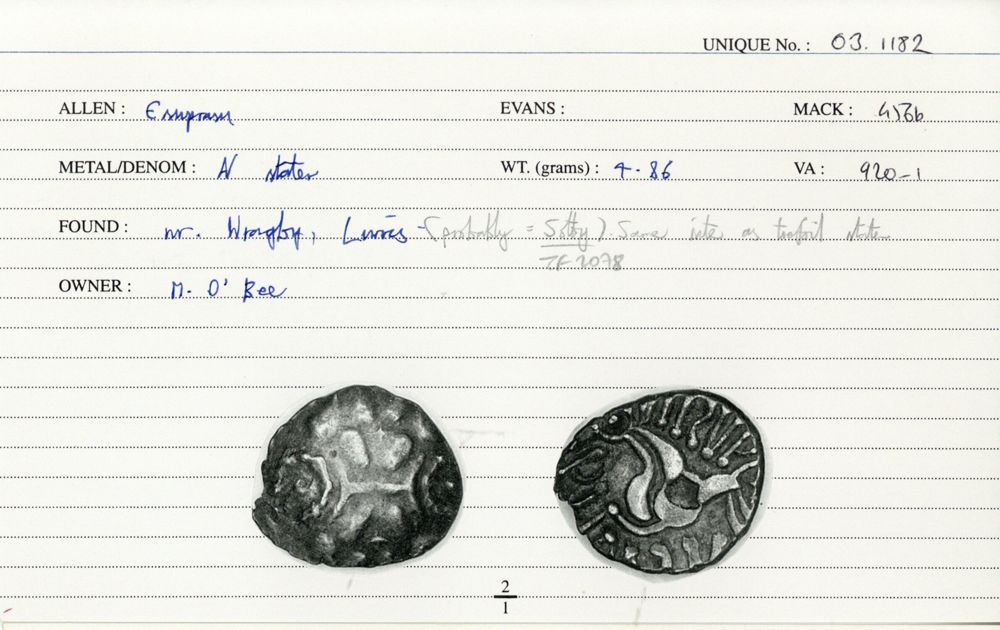 UNIQUE No. : 03. 1182
ALLEN : Esuprasu EVANS : MACK : 456b
METAL/DENOM : N stater WT. (grams) : 4.86 VA : 920-1
FOUND : nr. Wragby, Lincs (probably = Sotby). Same site as trefoil stater
TF 2078
OWNER : M. O' Bee
2
1